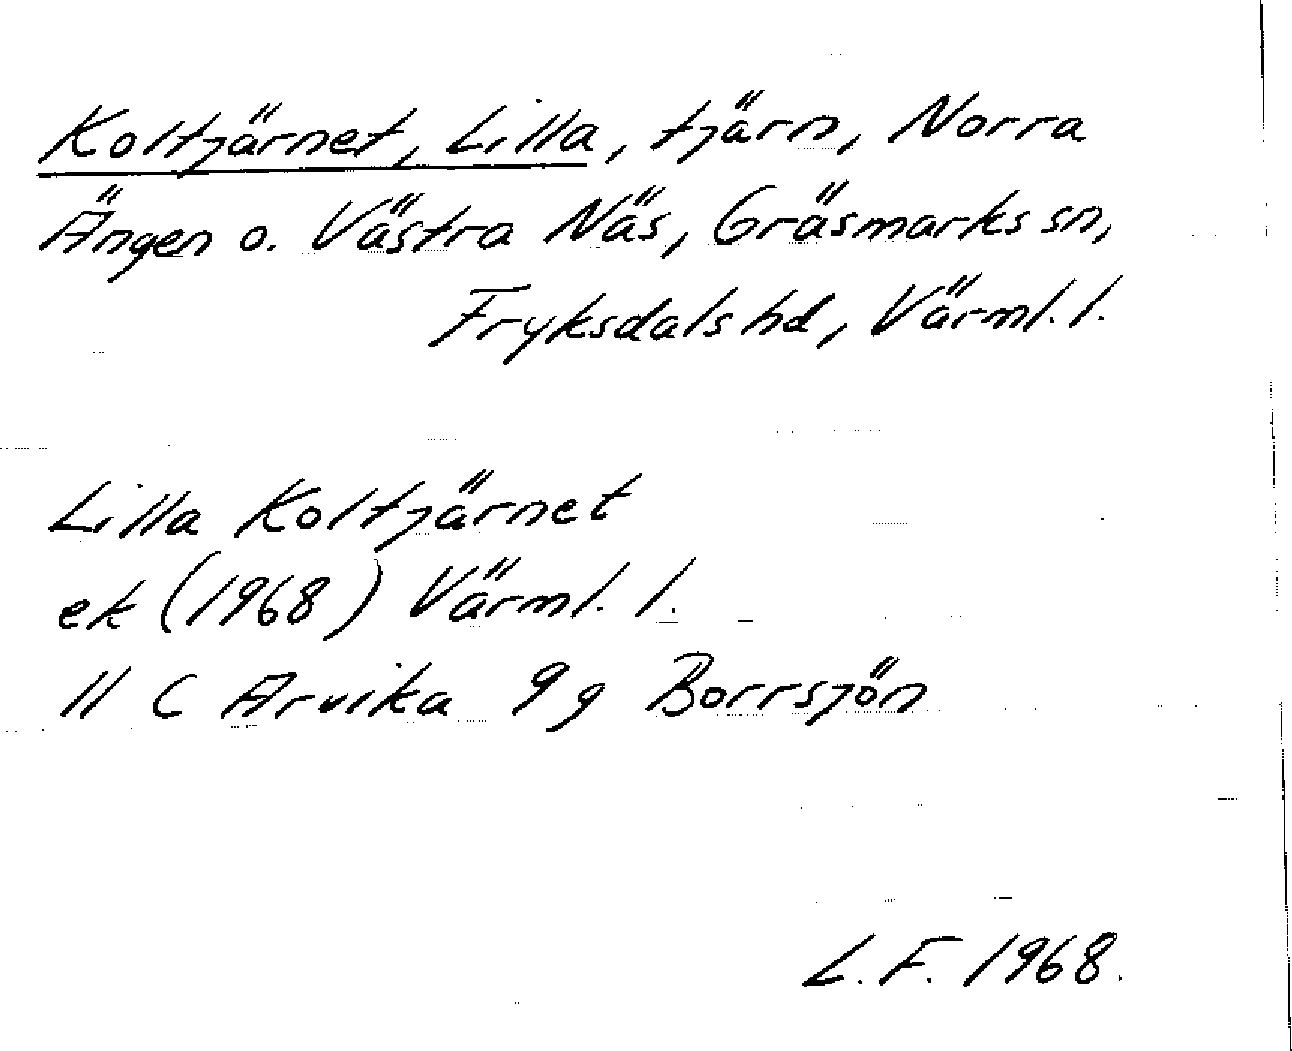 Koltjärnet, Lilla, tjärn, Norra
Ängen o. Västra Näs, Gräsmarks sn,
Fryksdals hd, Värml. l.
Lilla Koltjärnet
ek (1968) Värml. l.
11 C Arvika 9 g Borrsjön
L. F. 1968.